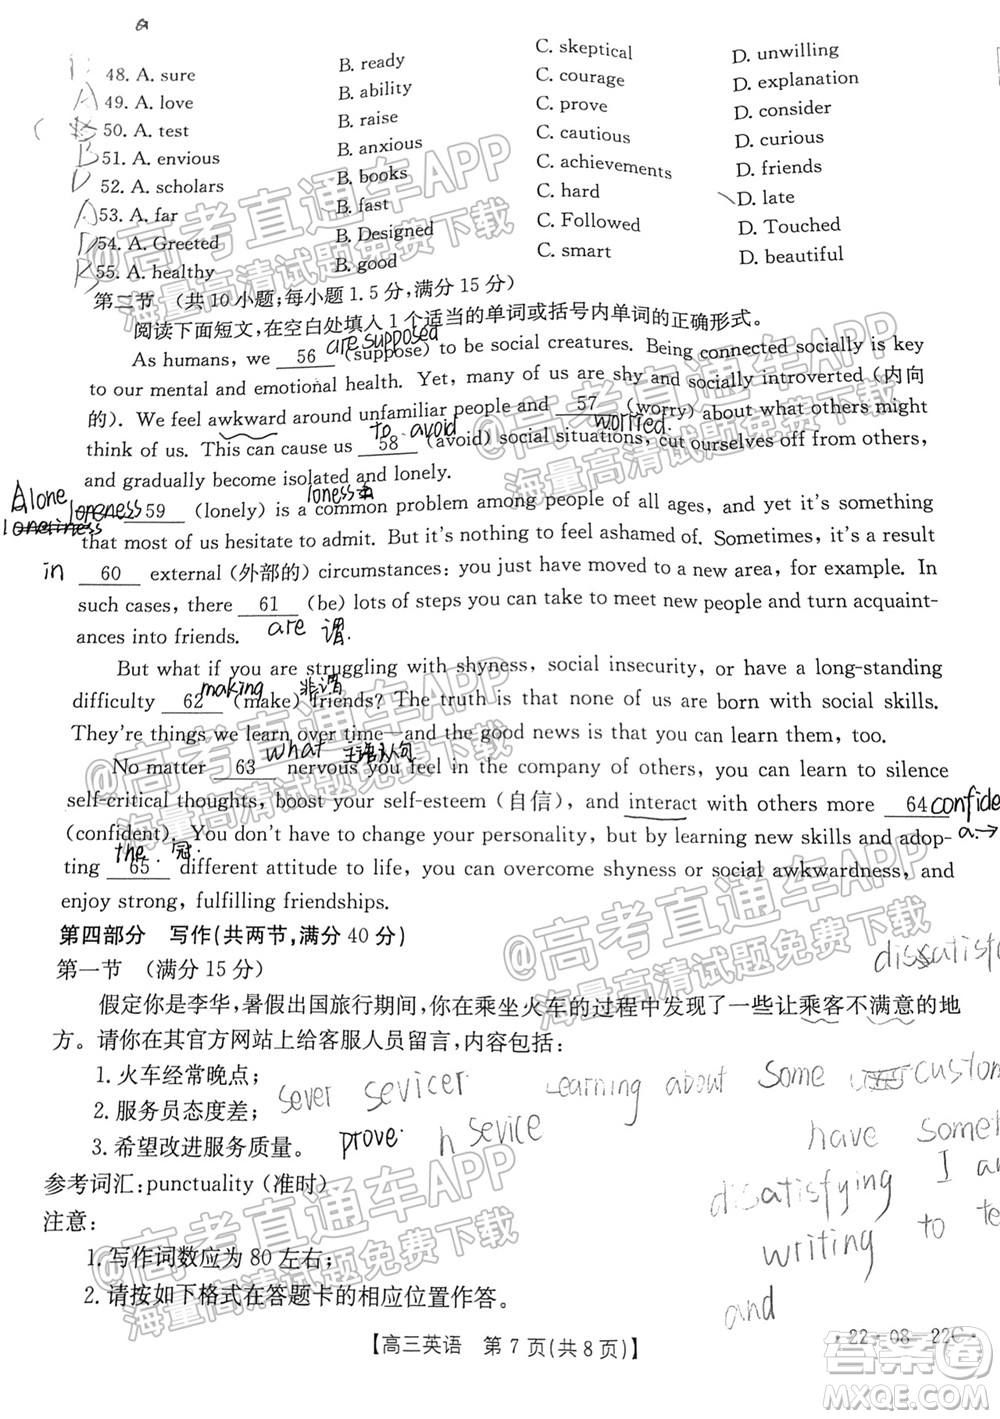 a
B 48. A. sure B. ready C. skeptical D. unwilling
A 49. A. love B. ability C. courage D. explanation
50. A. test B. raise C. prove D. consider
B 51. A. envious B. anxious C. cautious D. curious
D 52. A. scholars B. books C. achievements D. friends
A 53. A. far B. fast C. hard D. late
D 54. A. Greeted B. Designed C. Followed D. Touched
B 55. A. healthy B. good C. smart D. beautiful
第二节 (共10小题;每小题1.5分,满分15分)
阅读下面短文,在空白处填入1个适当的单词或括号内单词的正确形式。
are supposed
As humans, we 56 (suppose) to be social creatures. Being connected socially is key
to our mental and emotional health. Yet, many of us are shy and socially introverted (内向
的). We feel awkward around unfamiliar people and 57 (worry) about what others might
to avoid worried.
think of us. This can cause us 58 (avoid) social situations, cut ourselves off from others,
and gradually become isolated and lonely.
Alone loreness loness
59 (lonely) is a common problem among people of all ages, and yet it's something
that most of us hesitate to admit. But it's nothing to feel ashamed of. Sometimes, it's a result
in 60 external (外部的) circumstances: you just have moved to a new area, for example. In
such cases, there 61 (be) lots of steps you can take to meet new people and turn acquaint-
ances into friends. are 谓.
But what if you are struggling with shyness, social insecurity, or have a long-standing
making 非谓
difficulty 62 (make) friends? The truth is that none of us are born with social skills.
They're things we learn over time—and the good news is that you can learn them, too.
what 主语从句
No matter 63 nervous you feel in the company of others, you can learn to silence
self-critical thoughts, boost your self-esteem (自信), and interact with others more 64 confide
(confident). You don't have to change your personality, but by learning new skills and adop- a.→
the. 冠.
ting 65 different attitude to life, you can overcome shyness or social awkwardness, and
enjoy strong, fulfilling friendships.
第四部分 写作(共两节,满分40分)
第一节 (满分15分)
dissatisfy
假定你是李华,暑假出国旅行期间,你在乘坐火车的过程中发现了一些让乘客不满意的地
方。请你在其官方网站上给客服人员留言,内容包括:
1. 火车经常晚点;
2. 服务员态度差; sever sevicer learning about some custom
3. 希望改进服务质量。 prove h sevice have somet
参考词汇:punctuality (准时)
disatisfying I am
注意:
writing to te
1. 写作词数应为80左右;
2. 请按如下格式在答题卡的相应位置作答。
and
【高三英语 第7页(共8页)】
·22-08-22C·
@高考直通车APP
海量高清试题免费下载
@高考直通车APP
海量高清试题免费下载
@高考直通车APP
海量高清试题免费下载
@高考直通车APP
海量高清试题免费下载
@高考直通车APP
海量高清试题免费下载
答案圈
MXQE.COM